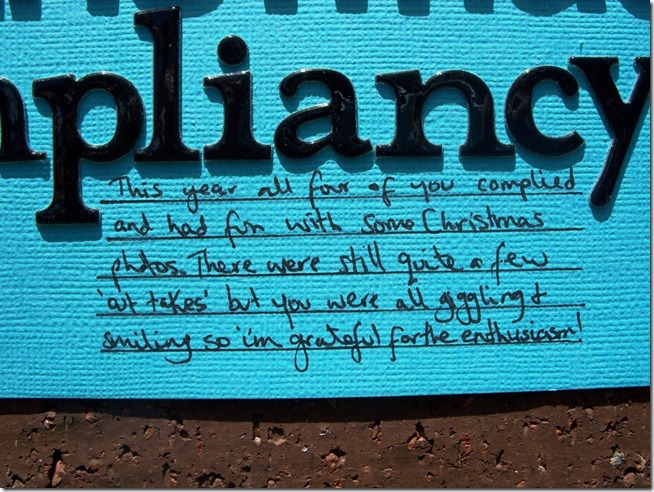 mpliancy
This year all four of you complied
and had fun with some Christmas
photos. There were still quite a few
'out takes' but you were all giggling &
smiling so i'm grateful for the enthusiasm!